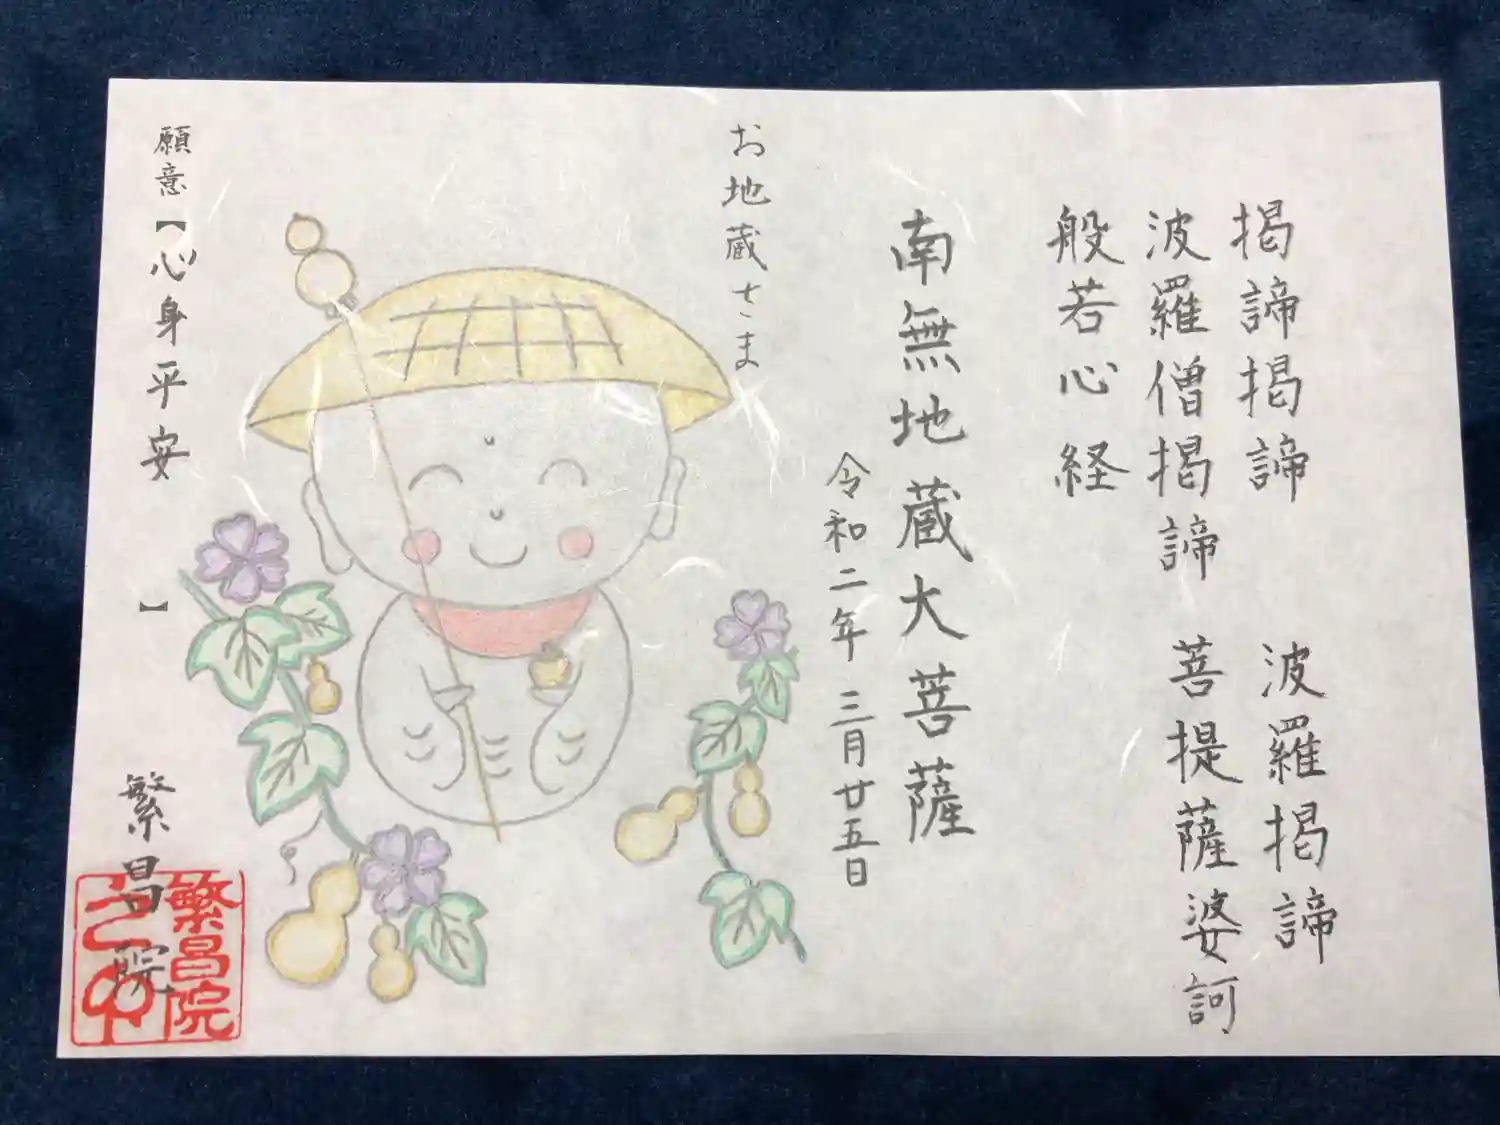 掲諦掲諦 波羅掲諦
波羅僧掲諦 菩提薩婆訶
般若心経
南無地蔵大菩薩
令和二年 三月廿五日
お地蔵さま
願意【心身平安 】
繁昌院
繁昌院
之印